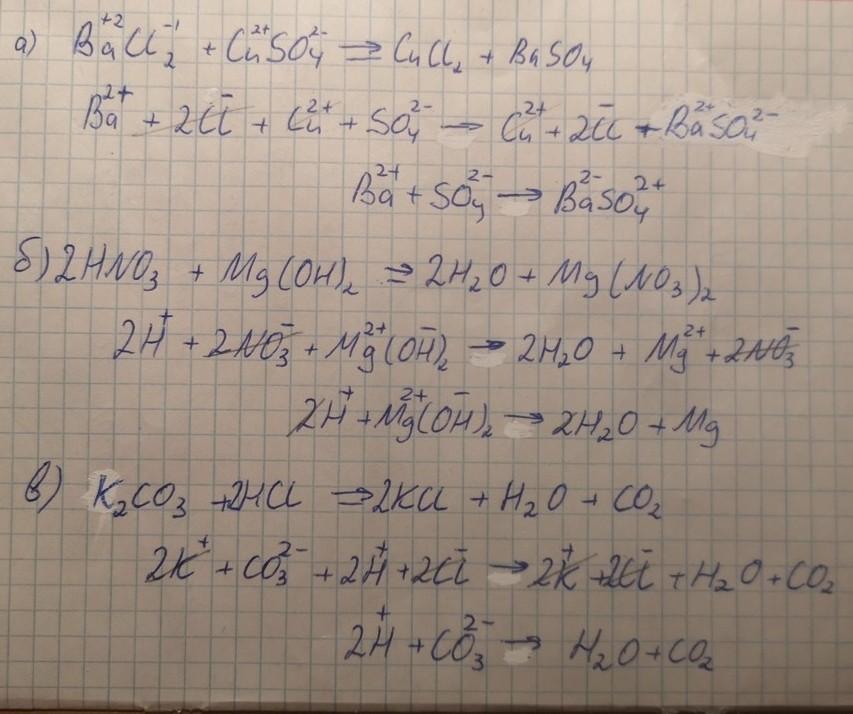 а) Ba⁺²Cl₂⁻¹ + Cu²⁺SO₄²⁻ ⇒ CuCl₂ + BaSO₄
Ba²⁺ + 2Cl⁻ + Cu²⁺ + SO₄²⁻ → Cu²⁺ + 2Cl⁻ + Ba²⁺SO₄²⁻
Ba²⁺ + SO₄²⁻ → Ba²⁻SO₄²⁺
б) 2HNO₃ + Mg(OH)₂ ⇒ 2H₂O + Mg(NO₃)₂
2H⁺ + 2NO₃⁻ + Mg²⁺(OH⁻)₂ → 2H₂O + Mg²⁺ + 2NO₃⁻
2H⁺ + Mg²⁺(OH⁻)₂ → 2H₂O + Mg
в) K₂CO₃ + 2HCl ⇒ 2KCl + H₂O + CO₂
2K⁺ + CO₃²⁻ + 2H⁺ + 2Cl⁻ → 2K⁺ + 2Cl⁻ + H₂O + CO₂
2H⁺ + CO₃²⁻ → H₂O + CO₂